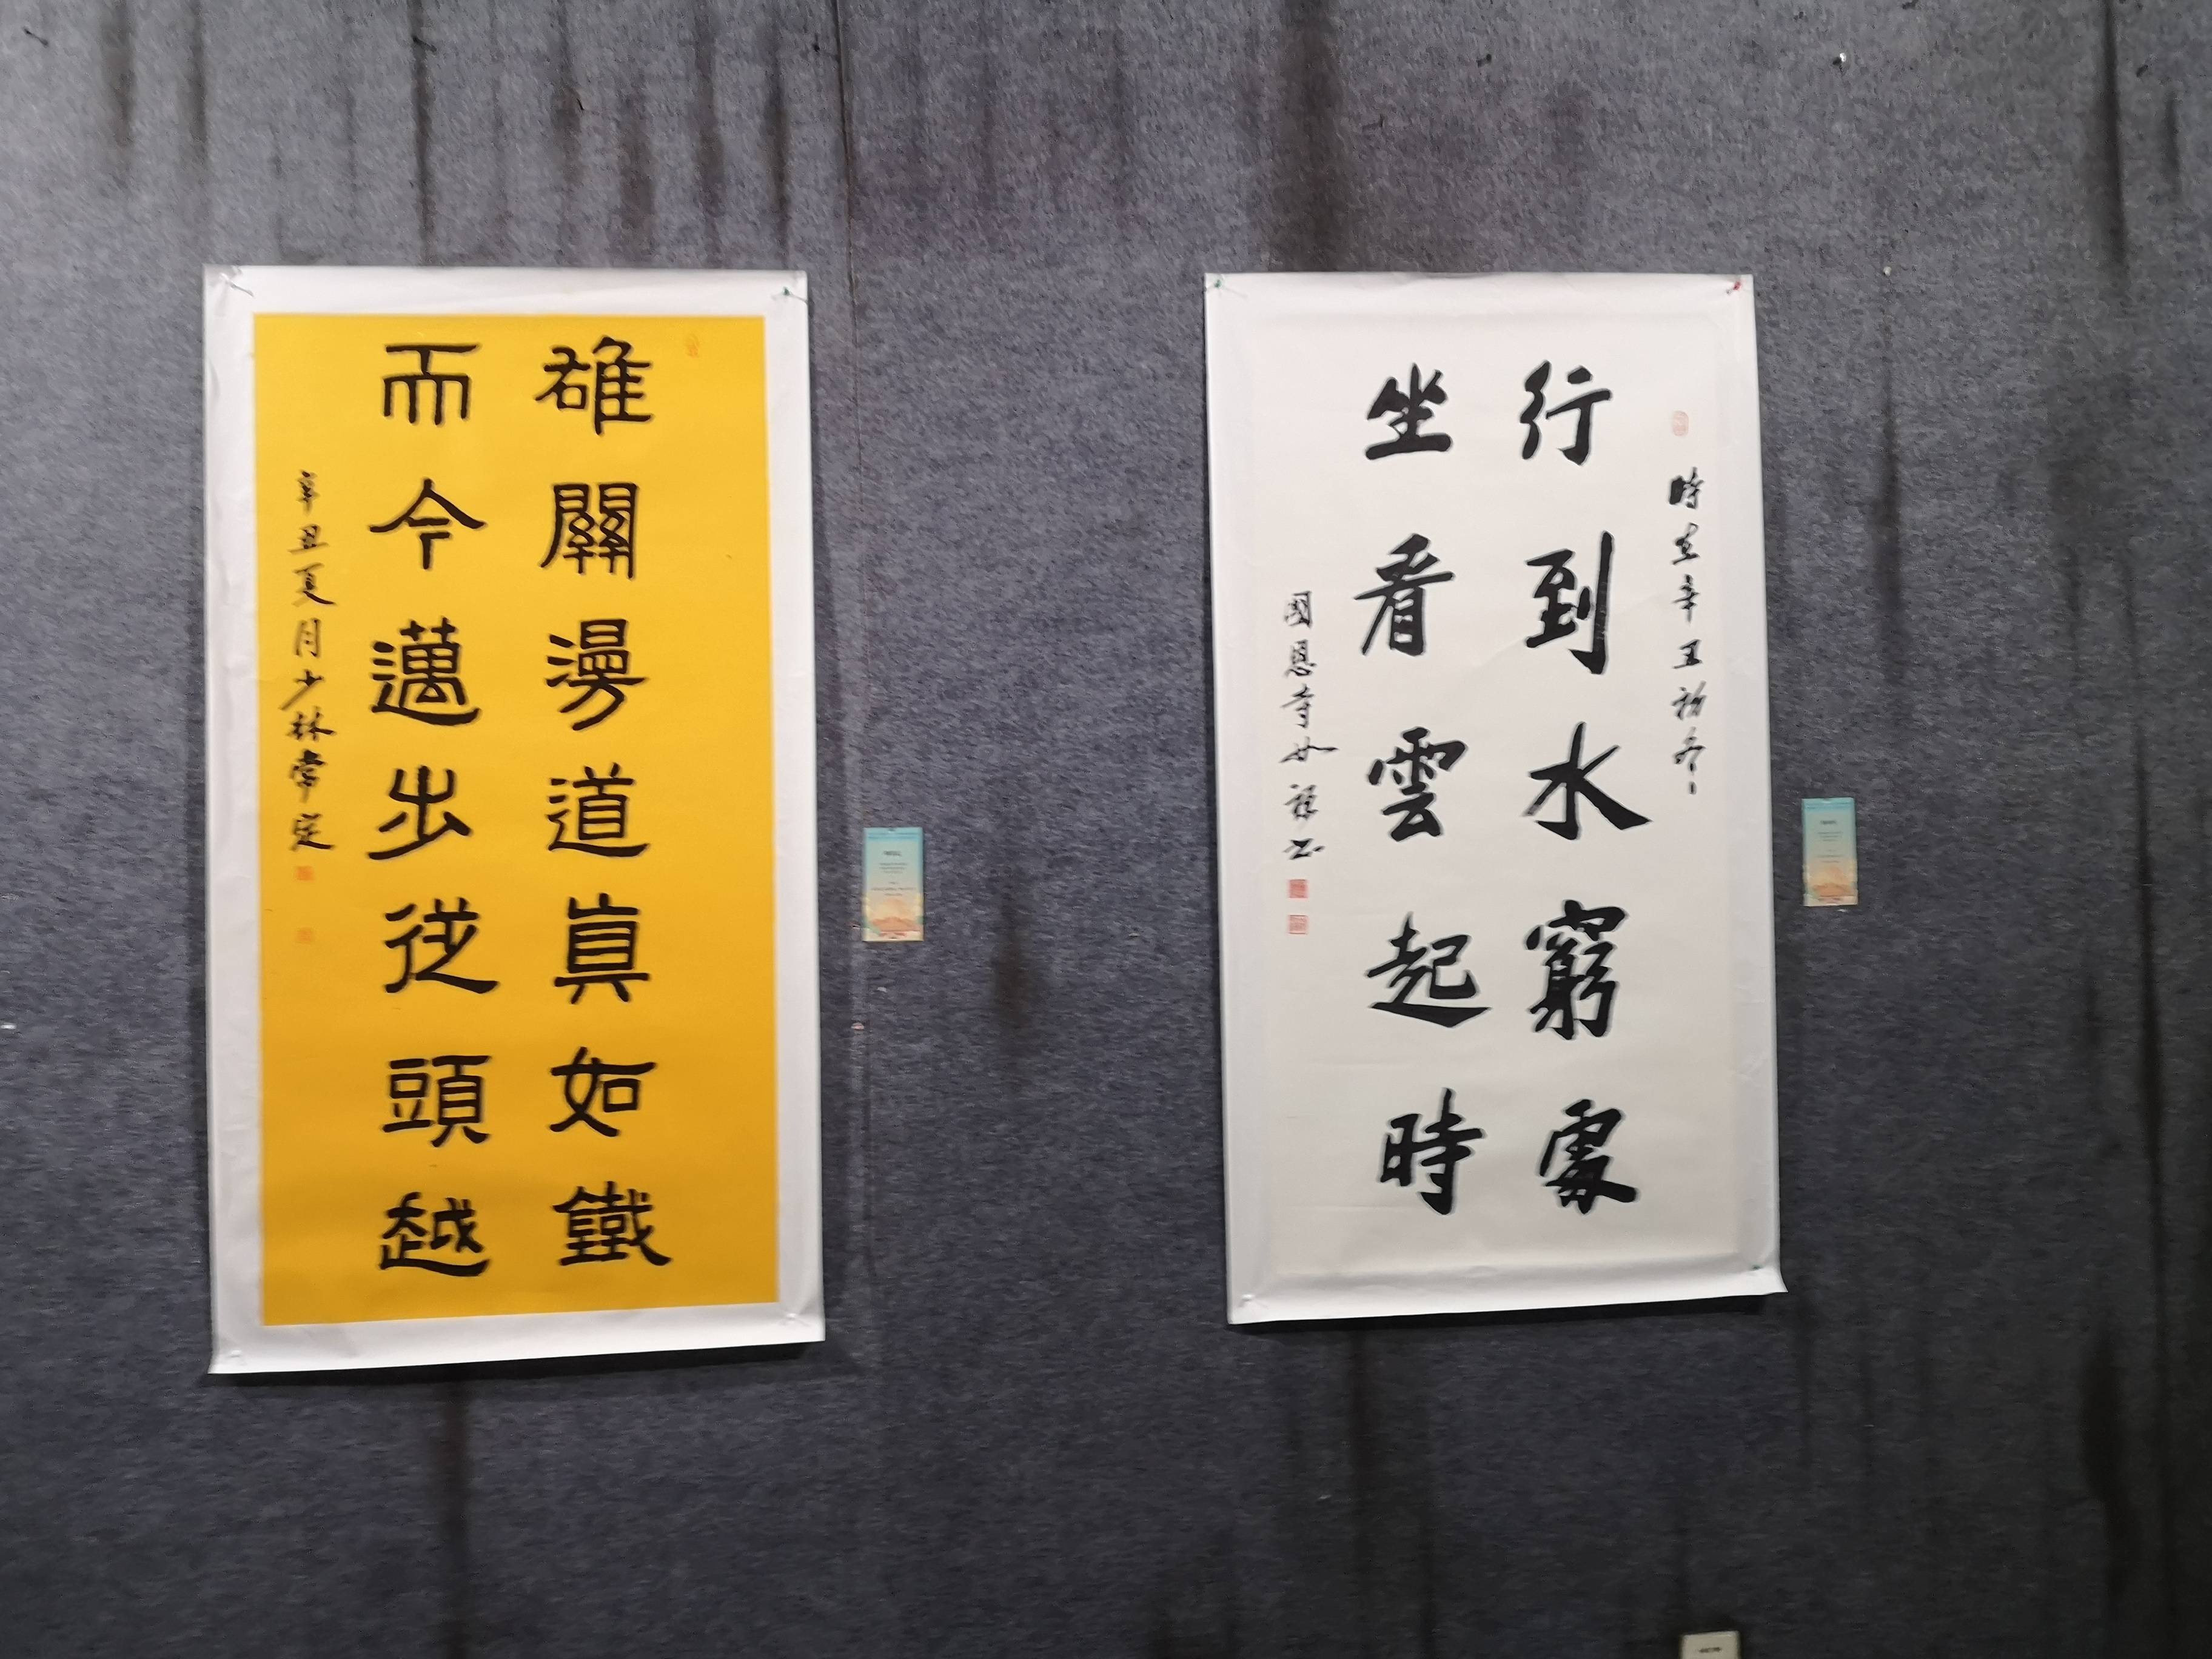 雄關漫道真如鐵
而今邁步從頭越
辛丑夏月少林常定
時在辛丑初冬
行到水窮處
坐看雲起時
國恩寺如禪书